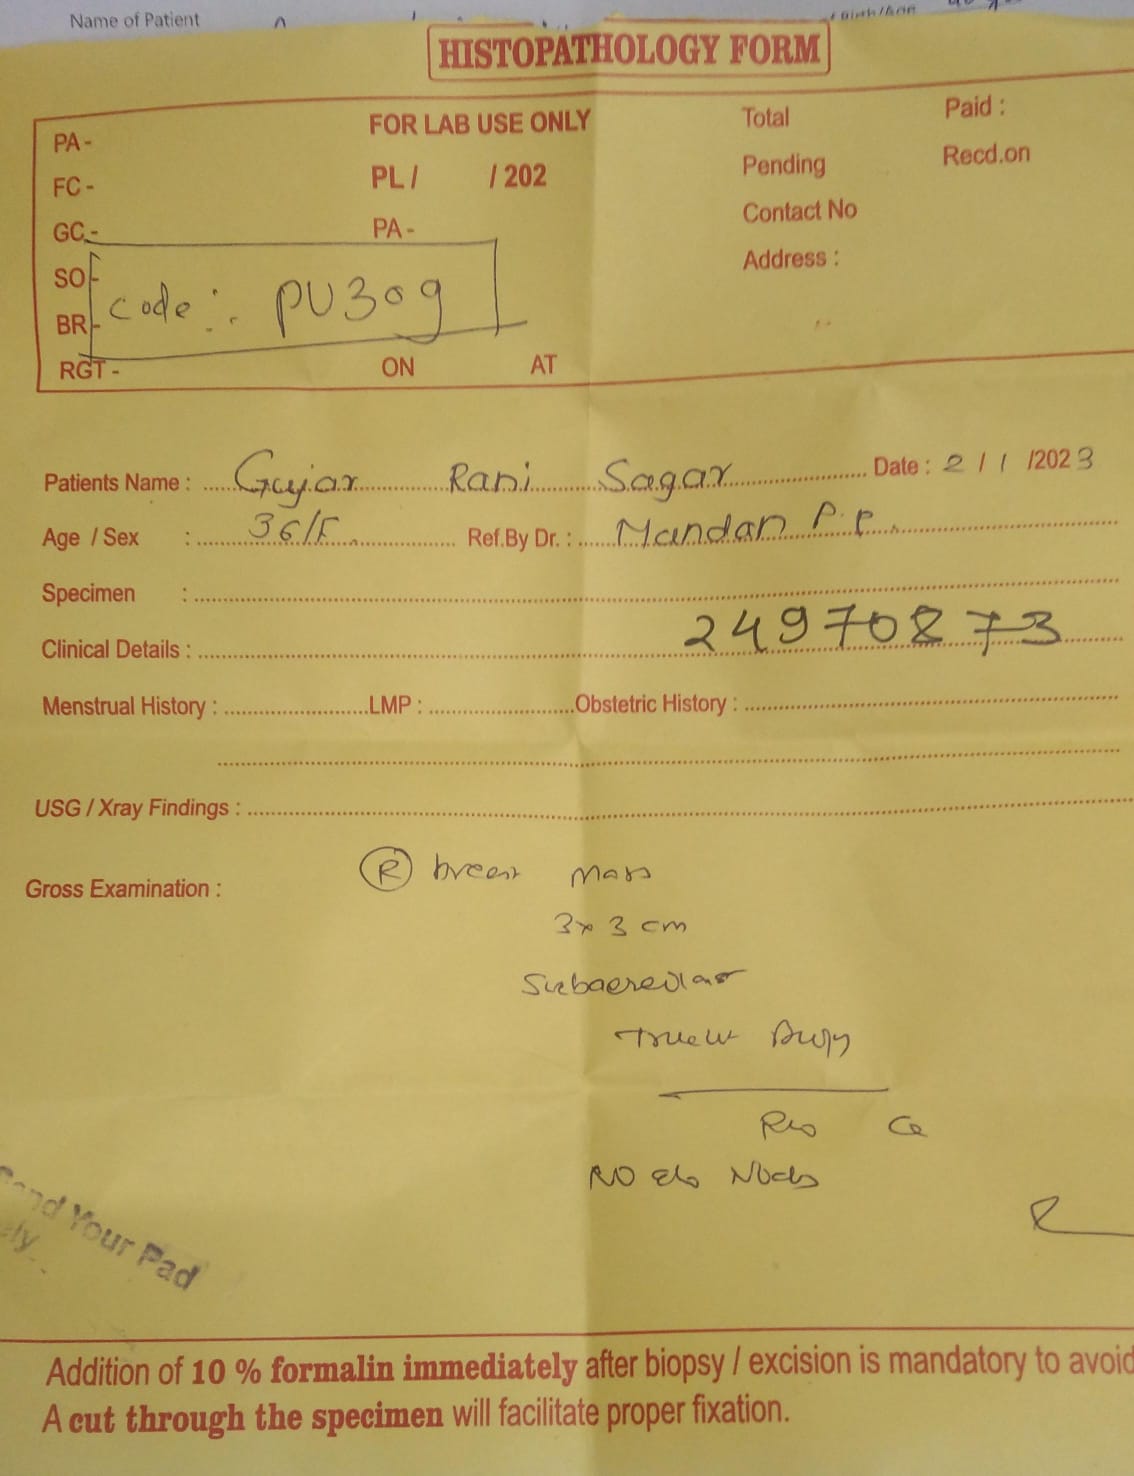 Name of Patient
HISTOPATHOLOGY FORM
PA - FOR LAB USE ONLY Total Paid :
FC - PL / / 202 Pending Recd.on
GC - PA - Contact No
SO - Address :
BR - Code :- PU309
RGT - ON AT
Patients Name : Gujar Rani Sagar Date : 2 / 1 /2023
Age / Sex : 36/F Ref.By Dr. : Mandan P.P.
Specimen :
Clinical Details : 24970873
Menstrual History : LMP : Obstetric History :
USG / Xray Findings :
Gross Examination : R breast Mass
3x3 cm
Subareolar
Trucut Biopsy
R/o Ca
No Nodes
Send Your Pad
Addition of 10 % formalin immediately after biopsy / excision is mandatory to avoid
A cut through the specimen will facilitate proper fixation.